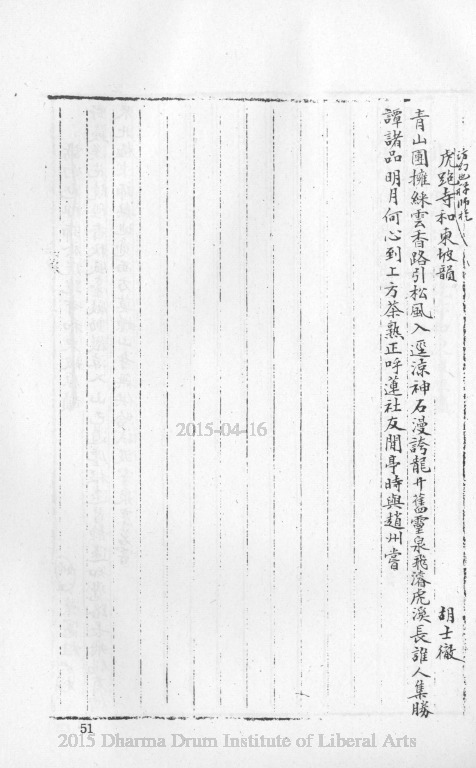 虎跑寺和東坡韻 胡士徽
青山團擁綵雲香路引松風入逕涼神石漫誇龍井舊靈泉飛瀋虎溪長誰人集勝
譚諸品明月何心到上方茶熟正呼蓮社友閒亭時與趙州嘗
2015-04-16
51
2015 Dharma Drum Institute of Liberal Arts